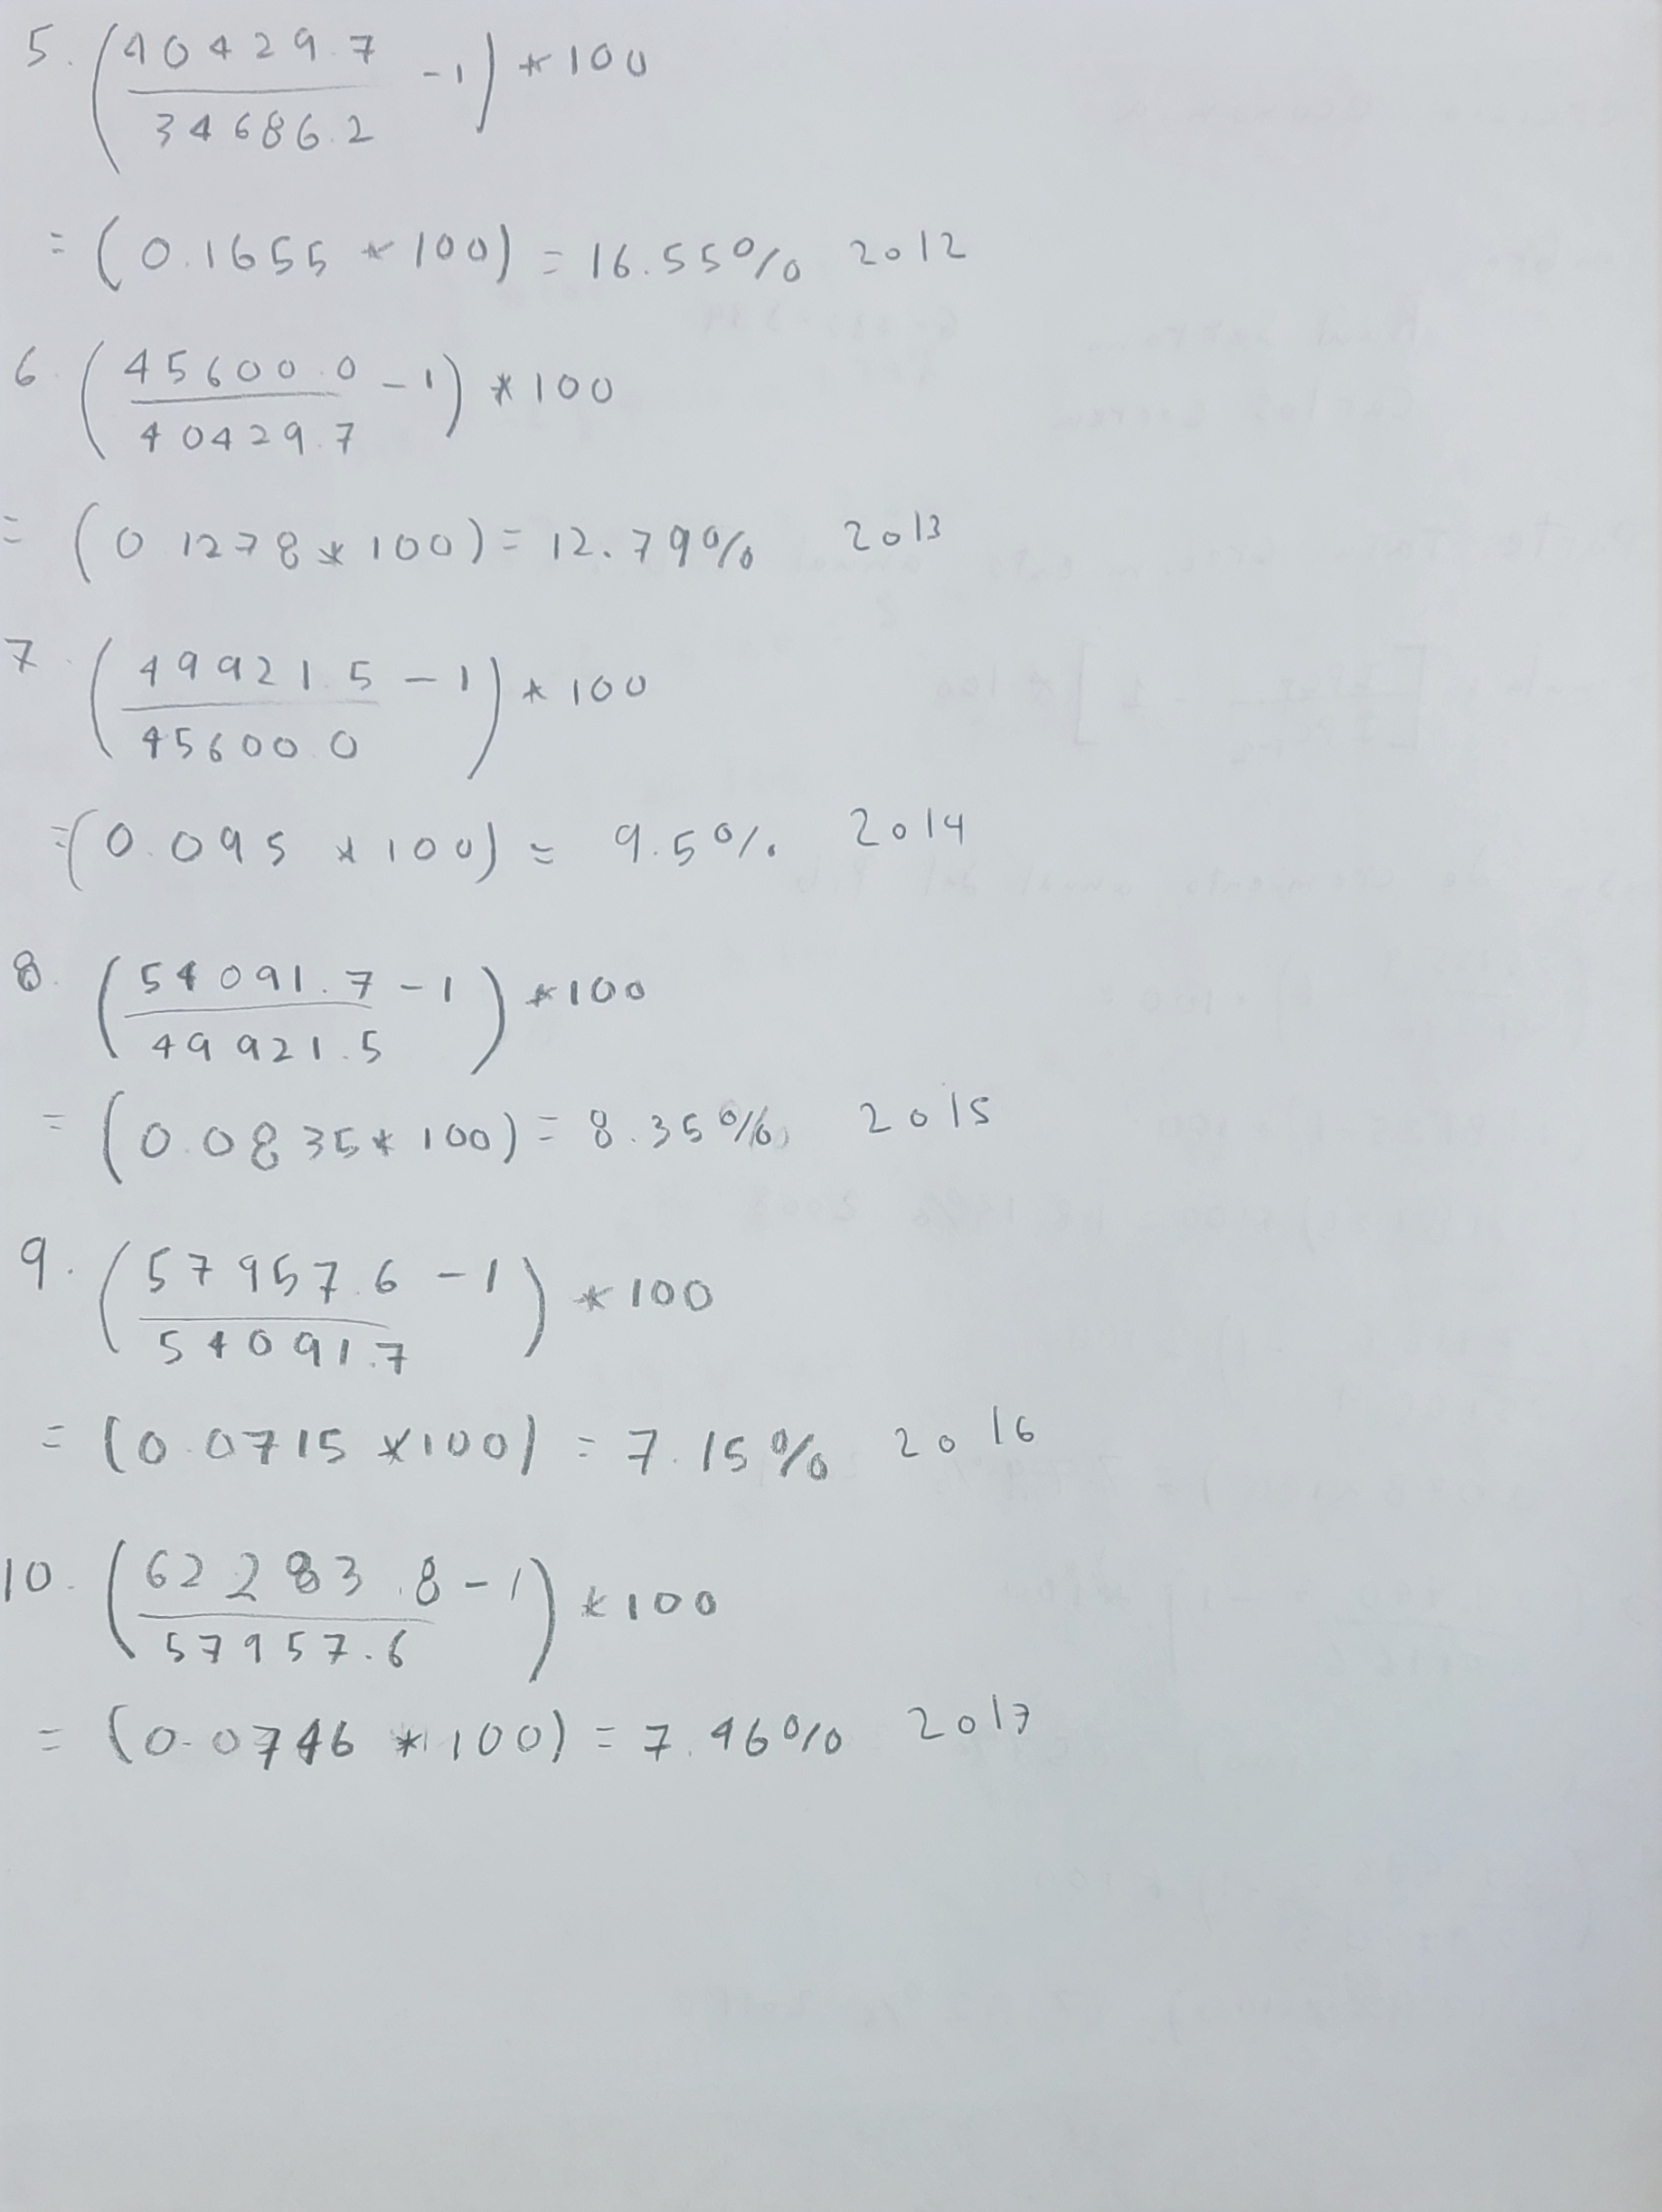 5. (40429.7 / 34686.2 -1) * 100
= (0.1655 * 100) = 16.55% 2012
6. (45600.0 / 40429.7 -1) * 100
= (0.1278 * 100) = 12.79% 2013
7. (49921.5 / 45600.0 -1) * 100
= (0.095 * 100) = 9.5% 2014
8. (54091.7 / 49921.5 -1) * 100
= (0.0835 * 100) = 8.35% 2015
9. (57957.6 / 54091.7 -1) * 100
= (0.0715 * 100) = 7.15% 2016
10. (62283.8 / 57957.6 -1) * 100
= (0.0746 * 100) = 7.46% 2017